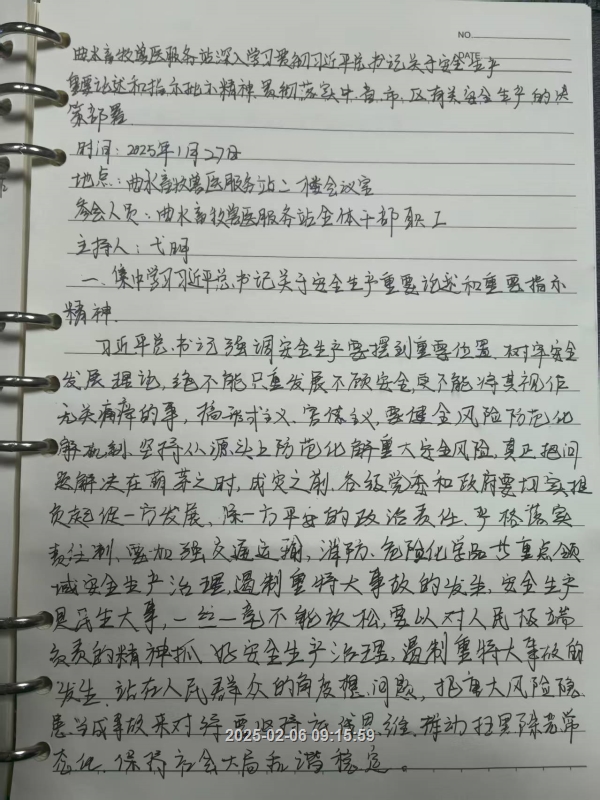 NO.
DATE
曲水畜牧兽医服务站深入学习贯彻习近平总书记关于安全生产
重要论述和指示批示精神、贯彻落实中、省、市、区有关安全生产的决
策部署
时间：2025年1月27日
地点：曲水畜牧兽医服务站二楼会议室
参会人员：曲水畜牧兽医服务站全体干部职工
主持人：弋明
一、集中学习习近平总书记关于安全生产重要论述和重要指示
精神.
习近平总书记强调安全生产要摆到重要位置，树牢安全
发展理论，绝不能只重发展不顾安全，更不能将其视作
无关痛痒的事，搞形式主义、官僚主义，要健全风险防范化
解机制，坚持从源头上防范化解重大安全风险，真正把问
题解决在萌芽之时，成灾之前，各级党委和政府要切实担
负起促一方发展、保一方平安的政治责任，严格落实
责任制，要加强交通运输、消防、危险化学品等重点领
域安全生产治理，遏制重特大事故的发生，安全生产
是民生大事，一丝一毫不能放松，要以对人民极端
负责的精神抓好安全生产治理，遏制重特大事故的
发生，站在人民群众的角度想问题，把重大风险隐
患当成事故来对待要坚持底线思维，推动扫黑除恶常
态化，保持社会大局和谐稳定。
2025-02-06 09:15:59